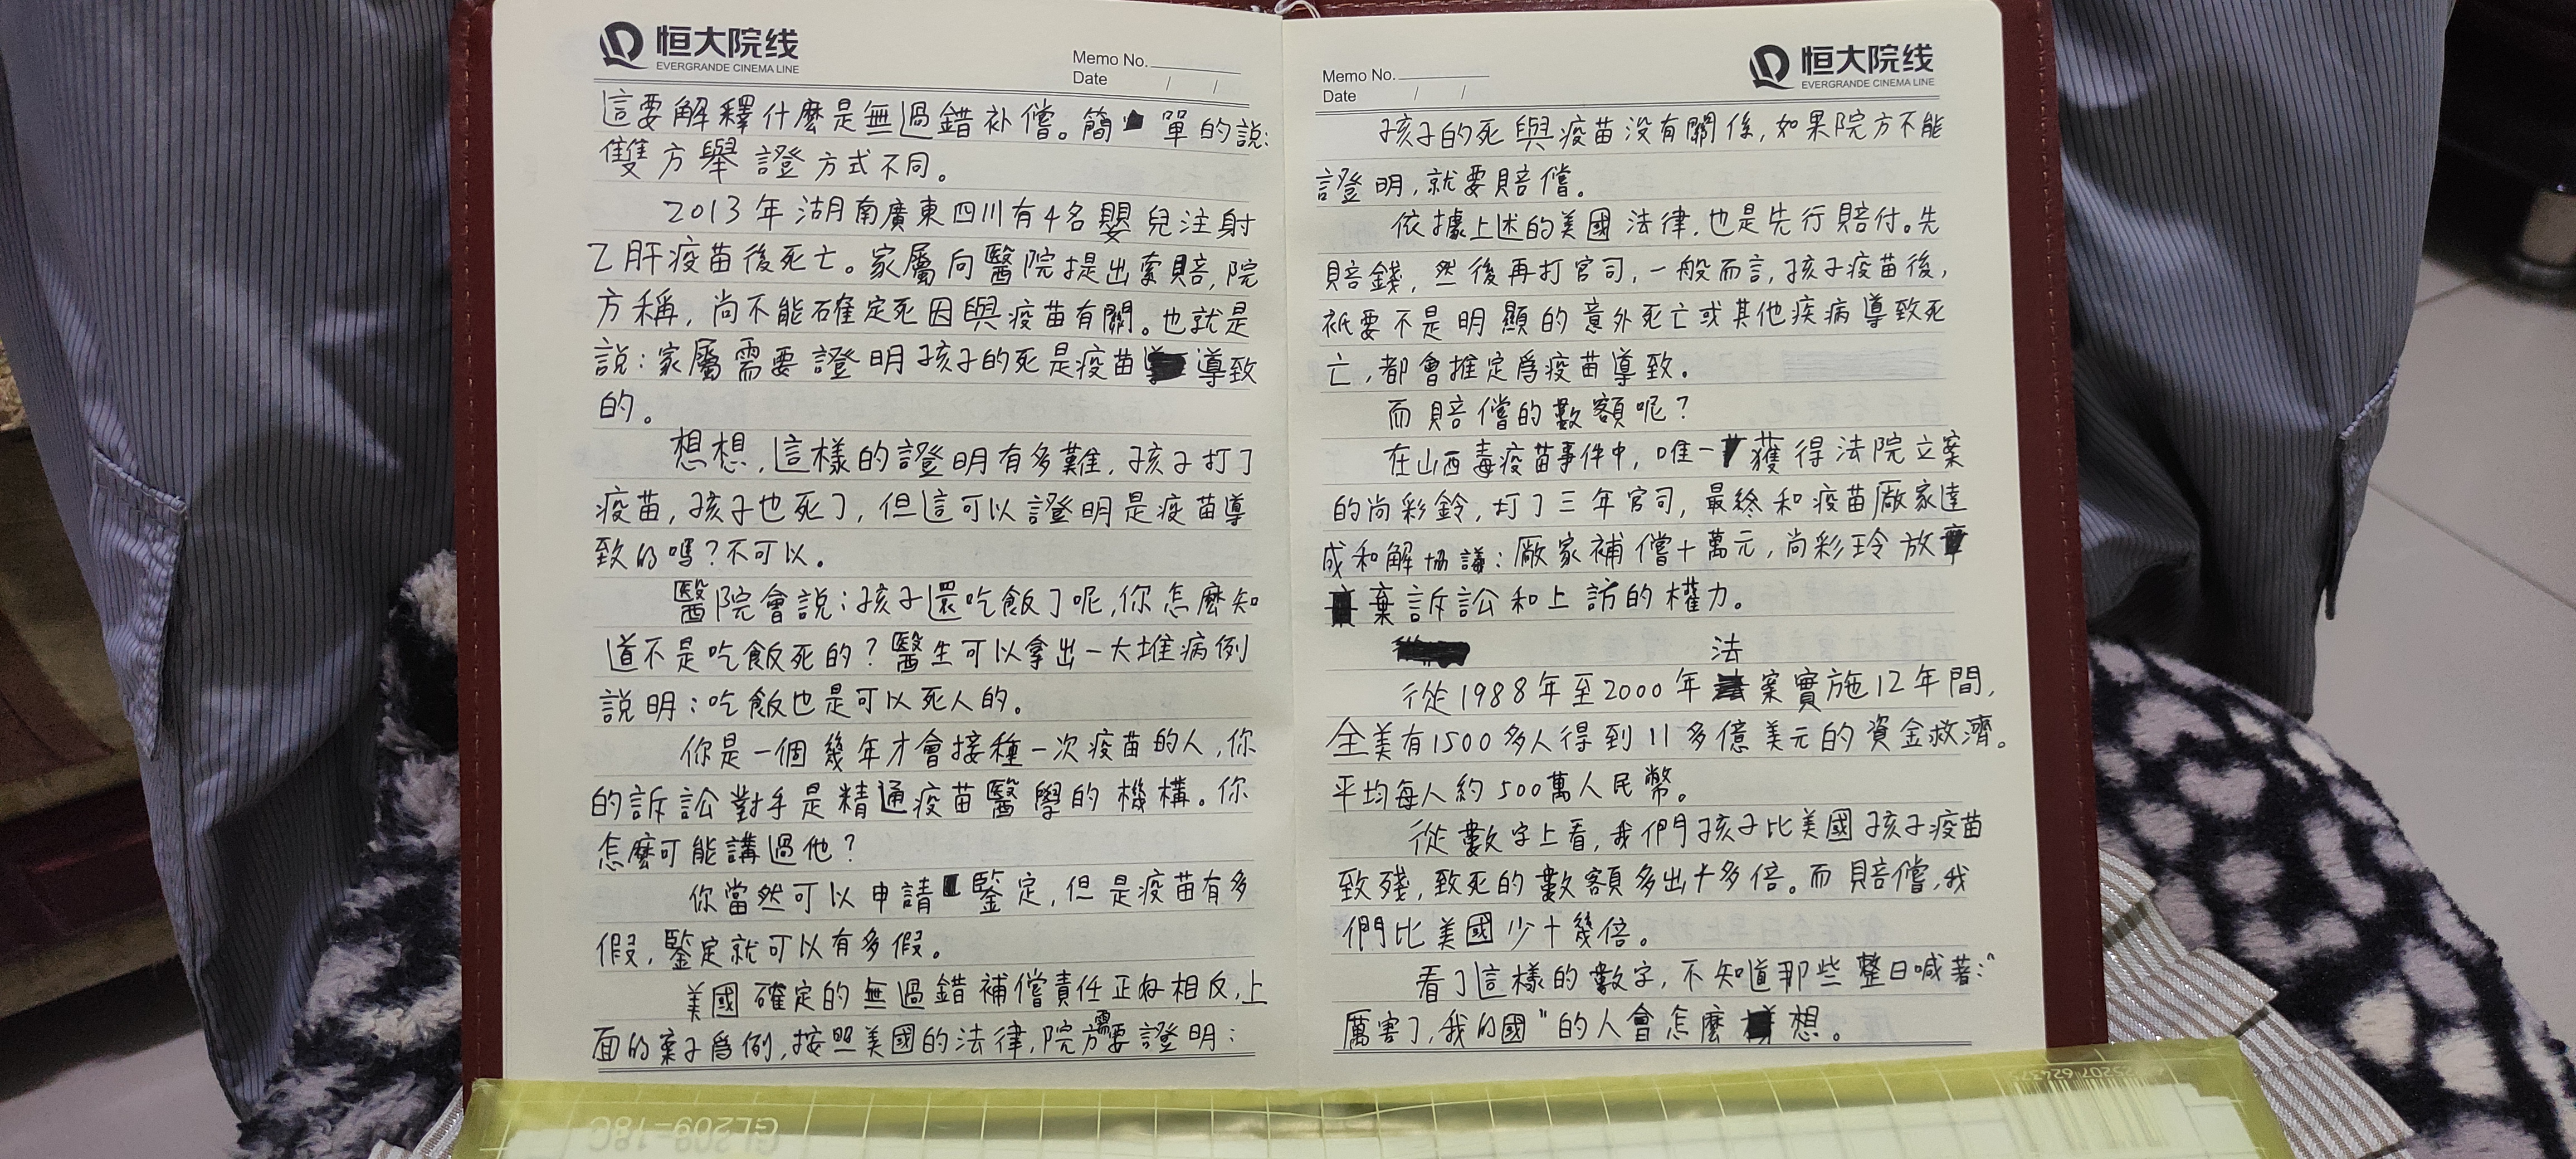 恒大院线
EVERGRANDE CINEMA LINE
Memo No.
Date / /
這要解釋什麼是無過錯补償。簡單的説:
雙方舉證方式不同。
2013年湖南廣東四川有4名嬰兒注射
乙肝疫苗後死亡。家屬向醫院提出索賠,院
方稱,尚不能確定死因與疫苗有關。也就是
説:家屬需要證明孩子的死是疫苗導致
的。
想想,這樣的證明有多難,孩子打了
疫苗,孩子也死了,但這可以證明是疫苗導
致的嗎?不可以。
醫院會説:孩子還吃飯了呢,你怎麼知
道不是吃飯死的?醫生可以拿出一大堆病例
説明:吃飯也是可以死人的。
你是一個幾年才會接種一次疫苗的人,你
的訴訟對手是精通疫苗醫學的機構。你
怎麼可能講過他?
你當然可以申請鑒定,但是疫苗有多
假,鑒定就可以有多假。
美國確定的無過錯補償責任正好相反,上
面的案子爲例,按照美國的法律,院方需要證明:
恒大院线
EVERGRANDE CINEMA LINE
Memo No.
Date / /
孩子的死與疫苗没有關係,如果院方不能
證明,就要賠償。
依據上述的美國法律,也是先行賠付。先
賠錢,然後再打官司,一般而言,孩子疫苗後,
衹要不是明顯的意外死亡或其他疾病導致死
亡,都會推定爲疫苗導致。
而賠償的數額呢?
在山西毒疫苗事件中,唯一獲得法院立案
的尚彩鈴,打了三年官司,最終和疫苗廠家達
成和解協議:廠家補償十萬元,尚彩玲放
棄訴訟和上訪的權力。
法
從1988年至2000年案實施12年間,
全美有1500多人得到11多億美元的資金救濟。
平均每人約500萬人民幣。
從數字上看,我們孩子比美國孩子疫苗
致殘,致死的數額多出十多倍。而賠償,我
們比美國少十幾倍。
看了這樣的數字,不知道那些整日喊著:"
厲害了,我的國"的人會怎麼想。
GL209-18C